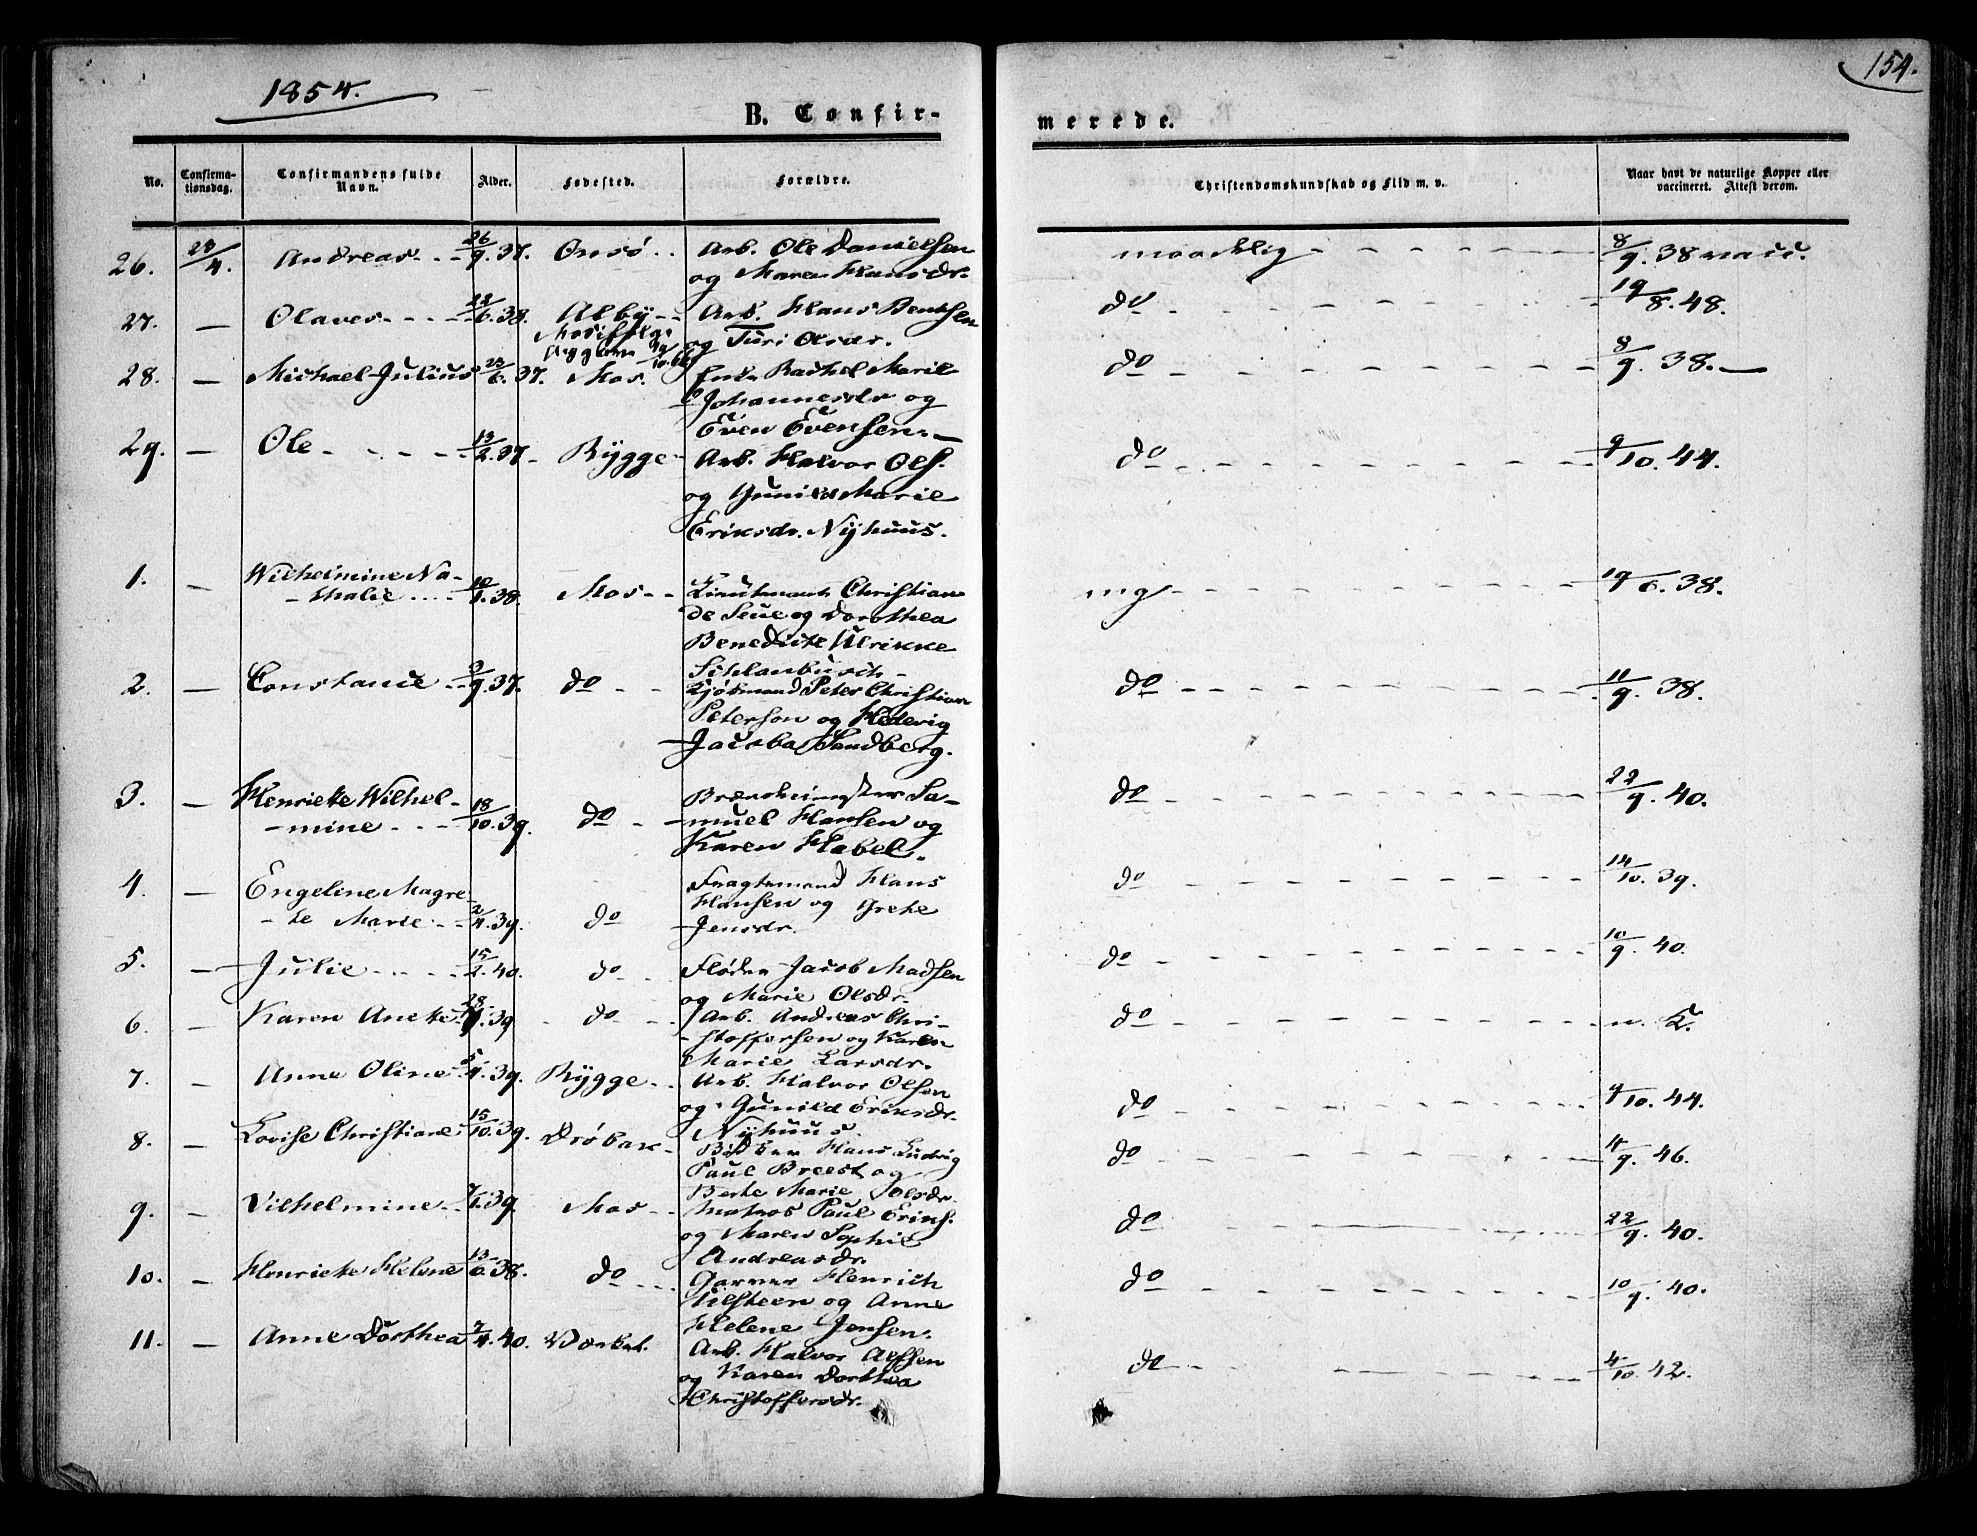 1854.
154.
B. Confir-
merede.
No. Confirma-tionsdag. Confirmandens fulde Navn. Alder. Fødested. Forældre. Christendomskundskab og Flid m. v. Naar havt de naturlige Kopper eller vaccineret. Attest derom.
26. 23/4. Andreas 26/9.37. Onsö Arb. Ole Danielsen maadelig 8/9. 38 vacc.
og Maren Hansdr.
27. — Olaves 22/6.38. Alby Arb. Hans Bentsen do 19/8. 48.
og Turi Olsdr.
28. — Michael Julius 23/6.37. Mos. Rachel Marie do 8/9. 38. —
Johannesdr og
Even Evensen. —
29. — Ole 13/2.37 Rygge Arb. Halvor Ols. do 9/10. 44.
og Gunild Marie
Eriksdr. Nyhuus.
1. — Wilhelmine Na-
thalie 10/1.38. Mos Lieutenant Christian mg 19/6. 38.
de Seue og Dorothea
Benedicte Ulrikke
Schlanbusch
2. — Constance 3/9.37. do Kjöbmand Peter Christian do 11/9. 38.
Peterson og Hedevig
Jacoba Sandberg.
3. — Henriette Wilhel-
mine 18/10.39. do Sa- do 22/9. 40.
muel Hansen og
Karen Habel.
4. — Engeline Magre-
te Marie 2/4.39. do Fragtemand Hans do 14/10. 39.
Hansen og Grethe
Jensdr.
5. — Julie 15/2.40. do Fløder Jacob Madsen do 10/9. 40.
og Marie Olsdr.
6. — Karen Anette 39 do Arb. Andreas Chri- do n. K.
stoffersen og Karen
Marie Larsdr.
7. — Anne Oline 5/4.39. Rygge Arb. Halvor Olsen do 9/10. 44.
og Gunild Eriksdr.
Nyhuus.
8. — Lovise Christiane 15/10.39. Dröbak Bødker Hans Ludvig do 4/9. 46.
Paul Breest og
Berte Marie Olsdr.
9. — Vilhelmine 7/1.39. Mos Matros Paul Eriks. do 22/9. 40.
og Maren Sophie
Andreasdr.
10. — Henriette Helene 13/6.38. do Garver Henrich do 10/9. 40.
Tilsteen og Anne
Helene Jensen.
11. — Anne Dorthea 7/4.40. Værket. Arb. Halvor Alfsen do 4/10. 42.
og Karen Dorthea
Christoffersdr.